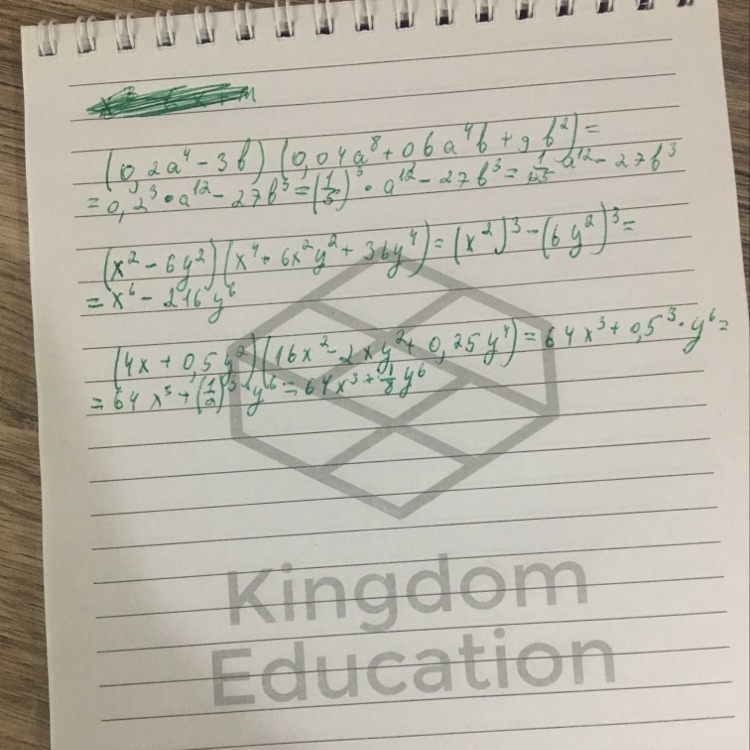 (0,2a⁴ - 3b) (0,04a⁸ + 06a⁴b + 9b²) =
= 0,2³ • a¹² - 27b³ = (1/5)³ • a¹² - 27b³ = 1/125 a¹² - 27b³
(x² - 6y²)(x⁴ + 6x²y² + 36y⁴) = (x²)³ - (6y²)³ =
= x⁶ - 216y⁶
(4x + 0,5y²)(16x² - 2xy² + 0,25y⁴) = 64x³ + 0,5³ • y⁶ =
= 64x³ + (1/2)³ y⁶ = 64x³ + 1/8 y⁶
Kingdom
Education